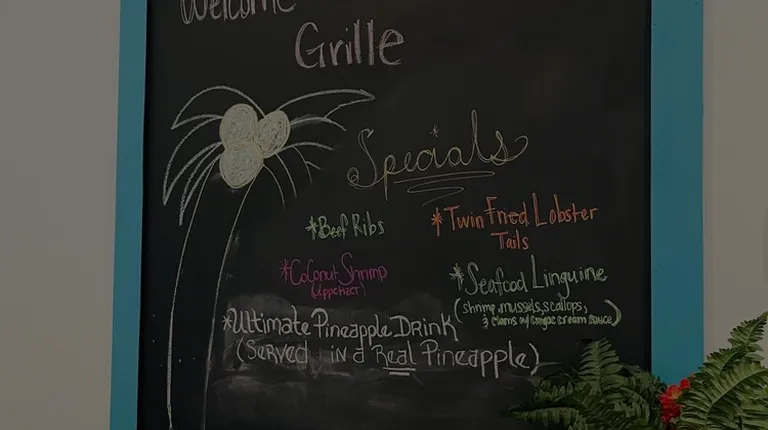 Welcome
Grille
Specials
*Beef Ribs
*Twin Fried Lobster
Tails
*Coconut Shrimp
(Appetizer)
*Seafood Linguine
(shrimp, mussels, scallops,
& clams w/ Cognac cream sauce)
*Ultimate Pineapple Drink
(Served in a Real Pineapple)